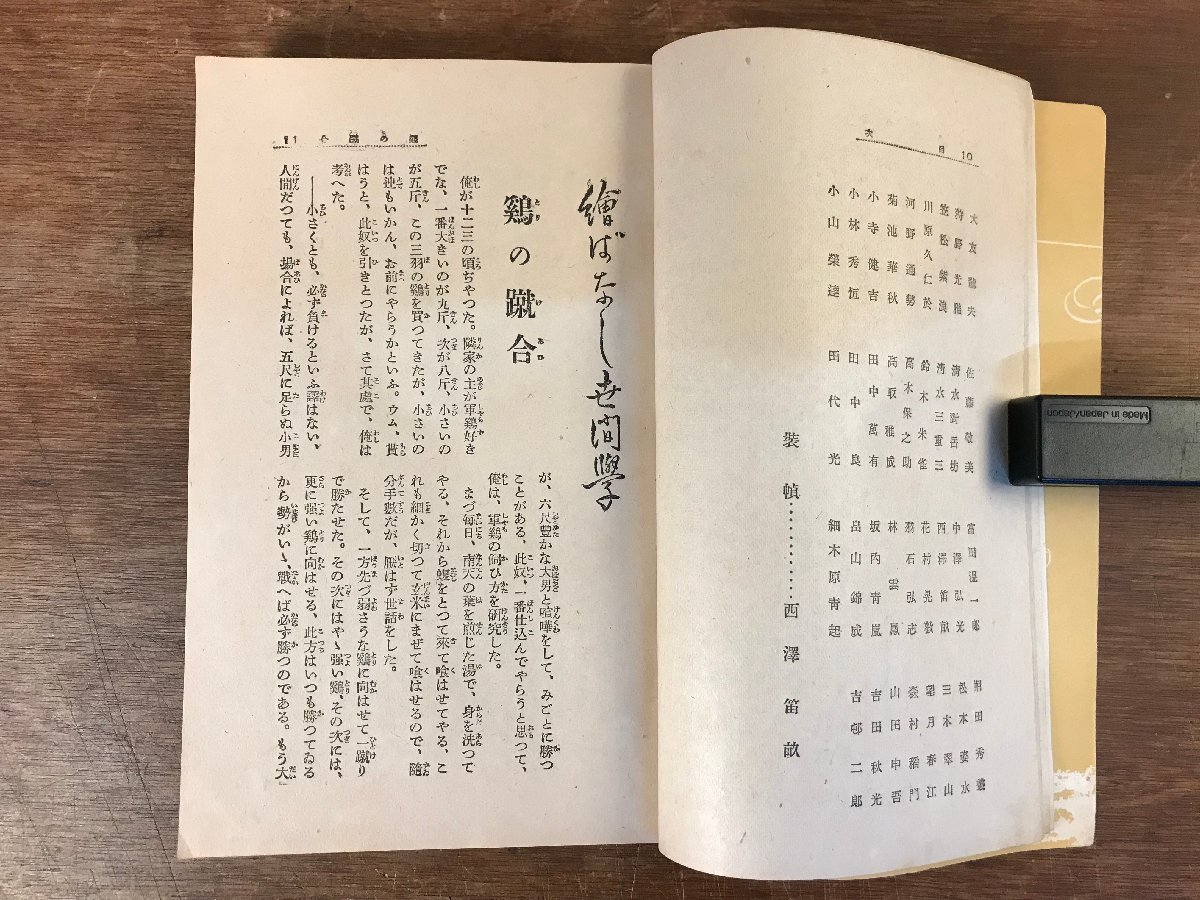 目次 10
大友
狩野光雅
笠松
川原久仁於
河野通勢
菊池華秋
小寺健吉
小林秀恒
小山榮達
佐藤敬美
清水
清水三重三
鈴木朱雀
高木保之助
高取稚成
田中萬有
田中良
田代光
富田温一郎
中澤弘光
西澤笛畝
花村晃
羽石弘志
林雲鳳
坂内青嵐
畠山錦成
細木原青起
田秀
松本姿水
三木翠山
望月春江
山田申吾
吉田秋光
吉邨二郎
裝幀…………西澤笛畝
鷄の蹴合 11
繪ばなし世間學
鷄の蹴合
俺が十二三の頃ぢやつた。隣家の主が軍鷄好き
でな、一番大きいのが九斤、次が八斤、小さいの
が五斤、この三羽の鷄を買つてきたが、小さいの
は迚もいかん、お前にやらうかといふ。ウム、貰
はうと、此奴を引きとつたが、さて其處で、俺は
考へた。
――小さくとも、必ず負けるといふ譯はない、
人間だつても、場合によれば、五尺に足らぬ小男
が、六尺豊かな大男と喧嘩をして、みごとに勝つ
ことがある、此奴、一番仕込んでやらうと思つて、
俺は、軍鷄の飼ひ方を研究した。
まづ毎日、南天の葉を煎じた湯で、身を洗つて
やる、それから蝮をとつて來て喰はせてやる、こ
れも細かく切つて玄米にまぜて喰はせるので、隨
分手數だが、厭はず世話をした。
そして、一方先づ弱さうな鷄に向はせて一蹴り
で勝たせた。その次にはやゝ强い鷄、その次には、
更に强い鷄に向はせる、此方はいつも勝つてゐる
から勢がいゝ、戰へば必ず勝つのである。もう大
Made in Japan/Japon